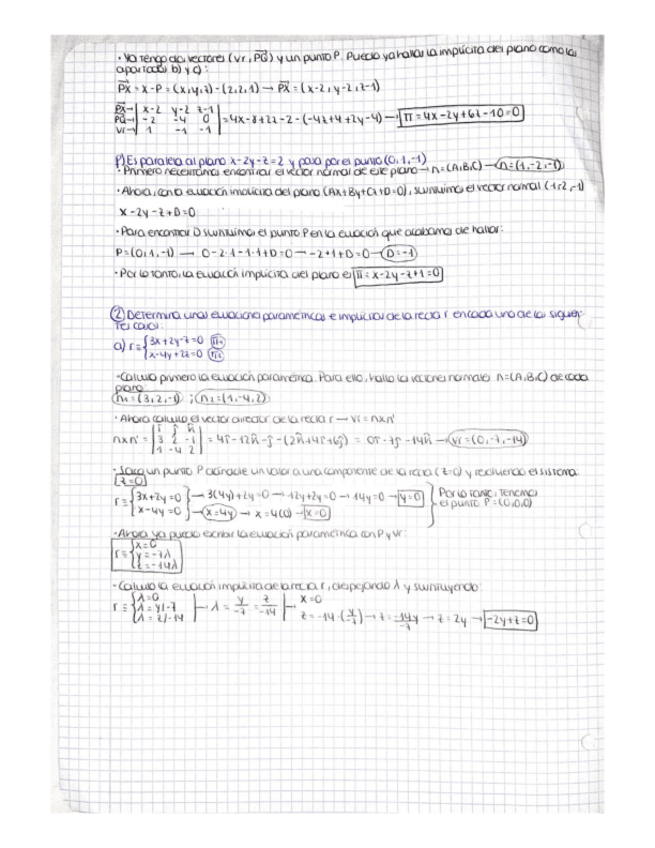 · Ya tengo dos vectores (vr, PQ) y un punto P. Puedo ya hallar la implícita del plano como los
apartados b) y c):
PX = X - P = (x,y,z) - (2,2,1) → PX = (x-2, y-2, z-1)
PX→ | x-2 y-2 z-1 |
PQ→ | -2 -4 0 | = 4x-8+2z-2-(-4z+4+2y-4) → π = 4x-2y+6z-10=0
vr→ | 1 -1 -1 |
f) Es paralela al plano x-2y-z=2 y pasa por el punto (0,1,-1)
· Primero necesitamos encontrar el vector normal de este plano → n=(A,B,C) → n=(1,-2,-1)
· Ahora, con la ecuación implícita del plano (Ax+By+Cz+D=0), sustituimos el vector normal (1,-2,-1)
x-2y-z+D=0
· Para encontrar D sustituimos el punto P en la ecuación que acabamos de hallar:
P=(0,1,-1) → 0-2·1-1·1+D=0 → -2+1+D=0 → D=-1
· Por lo tanto, la ecuación implícita del plano es π = x-2y-z+1=0
② Determina unas ecuaciones paramétricas e implícitas de la recta r en cada uno de los siguien-
tes casos:
a) r≡ { 3x+2y-z=0
x-4y+2z=0
· Calculo primero la ecuación paramétrica. Para ello, hallo los vectores normales n=(A,B,C) de cada
plano
n₁=(3,2,-1) ; n₂=(1,-4,2)
· Ahora calculo el vector director de la recta r → vr = nxn'
| i j k |
nxn' = | 3 2 -1 | = 4i-12k-j-(2k+4i+6j) = 0i-7j-14k → vr=(0,-7,-14)
| 1 -4 2 |
· Saco un punto P dándole un valor a una componente de la recta (z=0) y resolviendo el sistema:
z=0
r≡ { 3x+2y=0 } → 3(4y)+2y=0 → 12y+2y=0 → 14y=0 → y=0 } Por lo tanto, tenemos
x-4y=0 → x=4y → x=4(0) → x=0 el punto P=(0,0,0)
· Ahora ya puedo escribir la ecuación paramétrica con P y vr:
r≡ { x=0
y=-7λ
z=-14λ
· Calculo la ecuación implícita de la recta r, despejando λ y sustituyendo:
r≡ { λ=0
λ=y/-7 → λ = y/-7 = z/-14 → x=0
λ=z/-14 z=-14·(y/-7) → z=-14y/-7 → z=2y → -2y+z=0